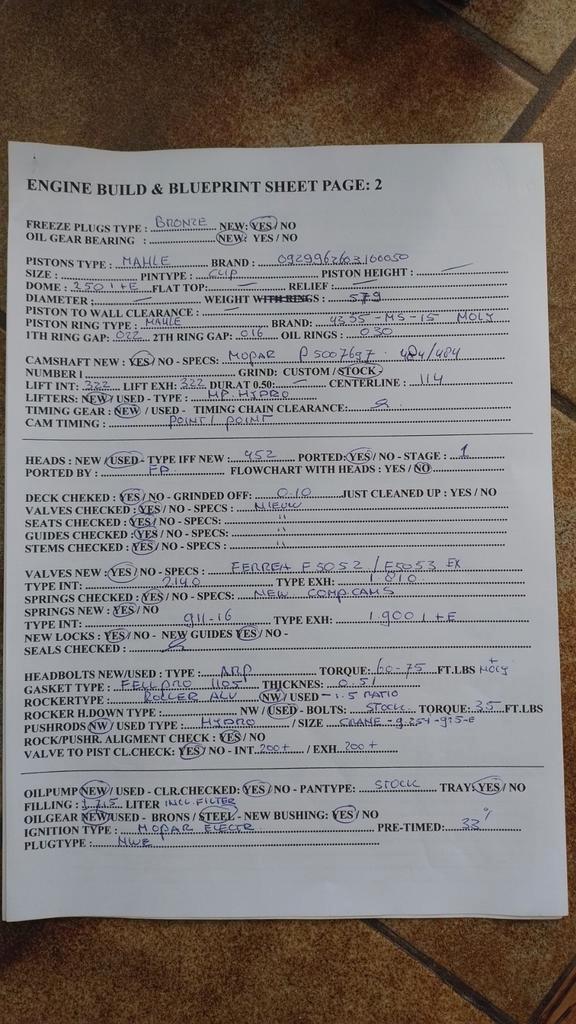 ENGINE BUILD & BLUEPRINT SHEET PAGE: 2
FREEZE PLUGS TYPE : BRONZE NEW: YES / NO
OIL GEAR BEARING : NEW: YES / NO
PISTONS TYPE : MAHLE BRAND :
SIZE : PINTYPE : CLIP PISTON HEIGHT : —
DOME : 250 I+E FLAT TOP: — RELIEF : —
DIAMETER : — WEIGHT WITH RINGS : 579
PISTON TO WALL CLEARANCE : —
PISTON RING TYPE : MAHLE BRAND: 4235-MS-15 MOLY
1TH RING GAP: 022 2TH RING GAP: 016 OIL RINGS : 030
CAMSHAFT NEW : YES / NO - SPECS: MOPAR P5007697 484/484
NUMBER I GRIND: CUSTOM / STOCK
LIFT INT: 322 LIFT EXH: 322 DUR.AT 0.50: — CENTERLINE : 114
LIFTERS: NEW / USED - TYPE : MP. HYDRO
TIMING GEAR : NEW / USED - TIMING CHAIN CLEARANCE:
CAM TIMING : POINT / POINT
HEADS : NEW / USED - TYPE IFF NEW : 452 PORTED: YES / NO - STAGE : 1
PORTED BY : FD FLOWCHART WITH HEADS : YES / NO
DECK CHEKED : YES / NO - GRINDED OFF: 0.10 JUST CLEANED UP : YES / NO
VALVES CHECKED : YES / NO - SPECS : NIEUW
SEATS CHECKED : YES / NO - SPECS: "
GUIDES CHECKED : YES / NO - SPECS: "
STEMS CHECKED : YES / NO - SPECS : "
VALVES NEW : YES / NO - SPECS : FERREA F5052 / F5053 EX
TYPE INT: 2140 TYPE EXH: 1810
SPRINGS CHECKED : YES / NO - SPECS: NEW COMP CAMS
SPRINGS NEW : YES / NO
TYPE INT: 911-16 TYPE EXH: 1.900 I+E
NEW LOCKS : YES / NO - NEW GUIDES YES / NO -
SEALS CHECKED :
HEADBOLTS NEW/USED : TYPE : ARP TORQUE: 60-75 FT.LBS MOLY
GASKET TYPE : FELLPRO 1105 THICKNES: 0.51
ROCKERTYPE : ROLLER ALU NW / USED - 1.5 RATIO
ROCKER H.DOWN TYPE : NW / USED - BOLTS: STOCK TORQUE: 35 FT.LBS
PUSHRODS NW / USED TYPE: HYDRO / SIZE CRANE - 9.254-925-E
ROCK/PUSHR. ALIGMENT CHECK : YES / NO
VALVE TO PIST CL.CHECK: YES / NO - INT. 200+ / EXH. 200+
OILPUMP NEW / USED - CLR.CHECKED: YES / NO - PANTYPE: STOCK TRAY: YES / NO
FILLING : LITER INCL. FILTER
OILGEAR NEW/USED - BRONS / STEEL - NEW BUSHING: YES / NO
IGNITION TYPE : MOPAR ELECTR PRE-TIMED: 33°
PLUGTYPE :